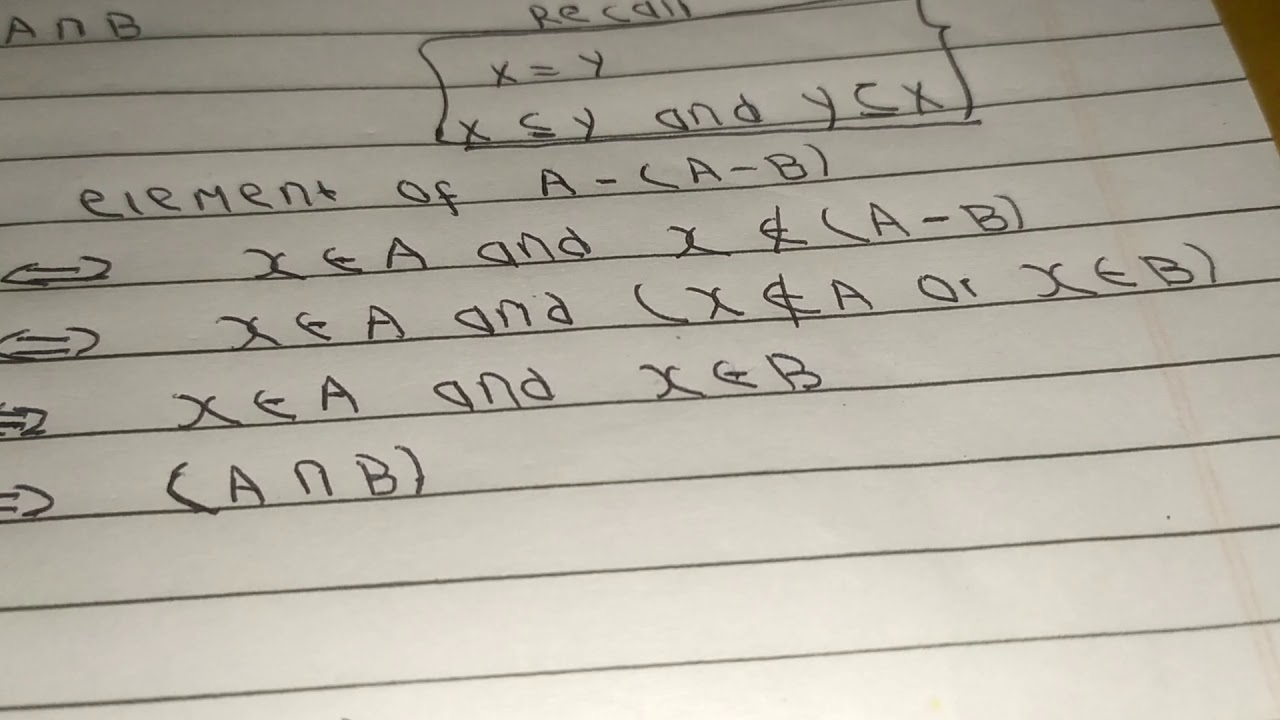 A ∩ B
Recall
x = y
x ⊆ y and y ⊆ x
element of A - (A - B)
⟺ x ∈ A and x ∉ (A - B)
⟺ x ∈ A and (x ∉ A or x ∈ B)
⟺ x ∈ A and x ∈ B
⟹ (A ∩ B)